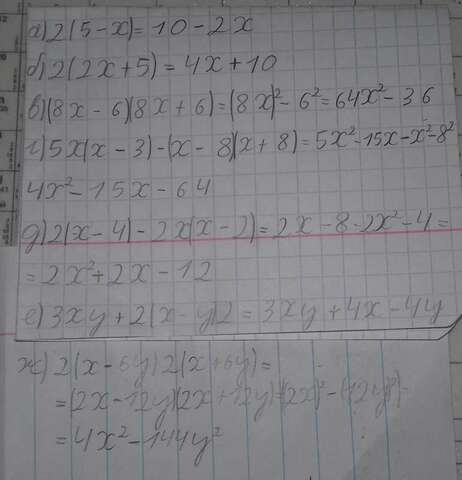 а) 2(5-x)=10-2x
б) 2(2x+5)=4x+10
в) (8x-6)(8x+6)=(8x)²-6²=64x²-36
г) 5x(x-3)-(x-8)(x+8)=5x²-15x-x²-8²
4x²-15x-64
д) 2(x-4)-2x(x-2)=2x-8-2x²-4=
=2x²+2x-12
е) 3xy+2(x-y)2=3xy+4x-4y
ж) 2(x-6y)2(x+6y)=
=(2x-12y)(2x+12y)=(2x)²-(12y)²=
=4x²-144y²